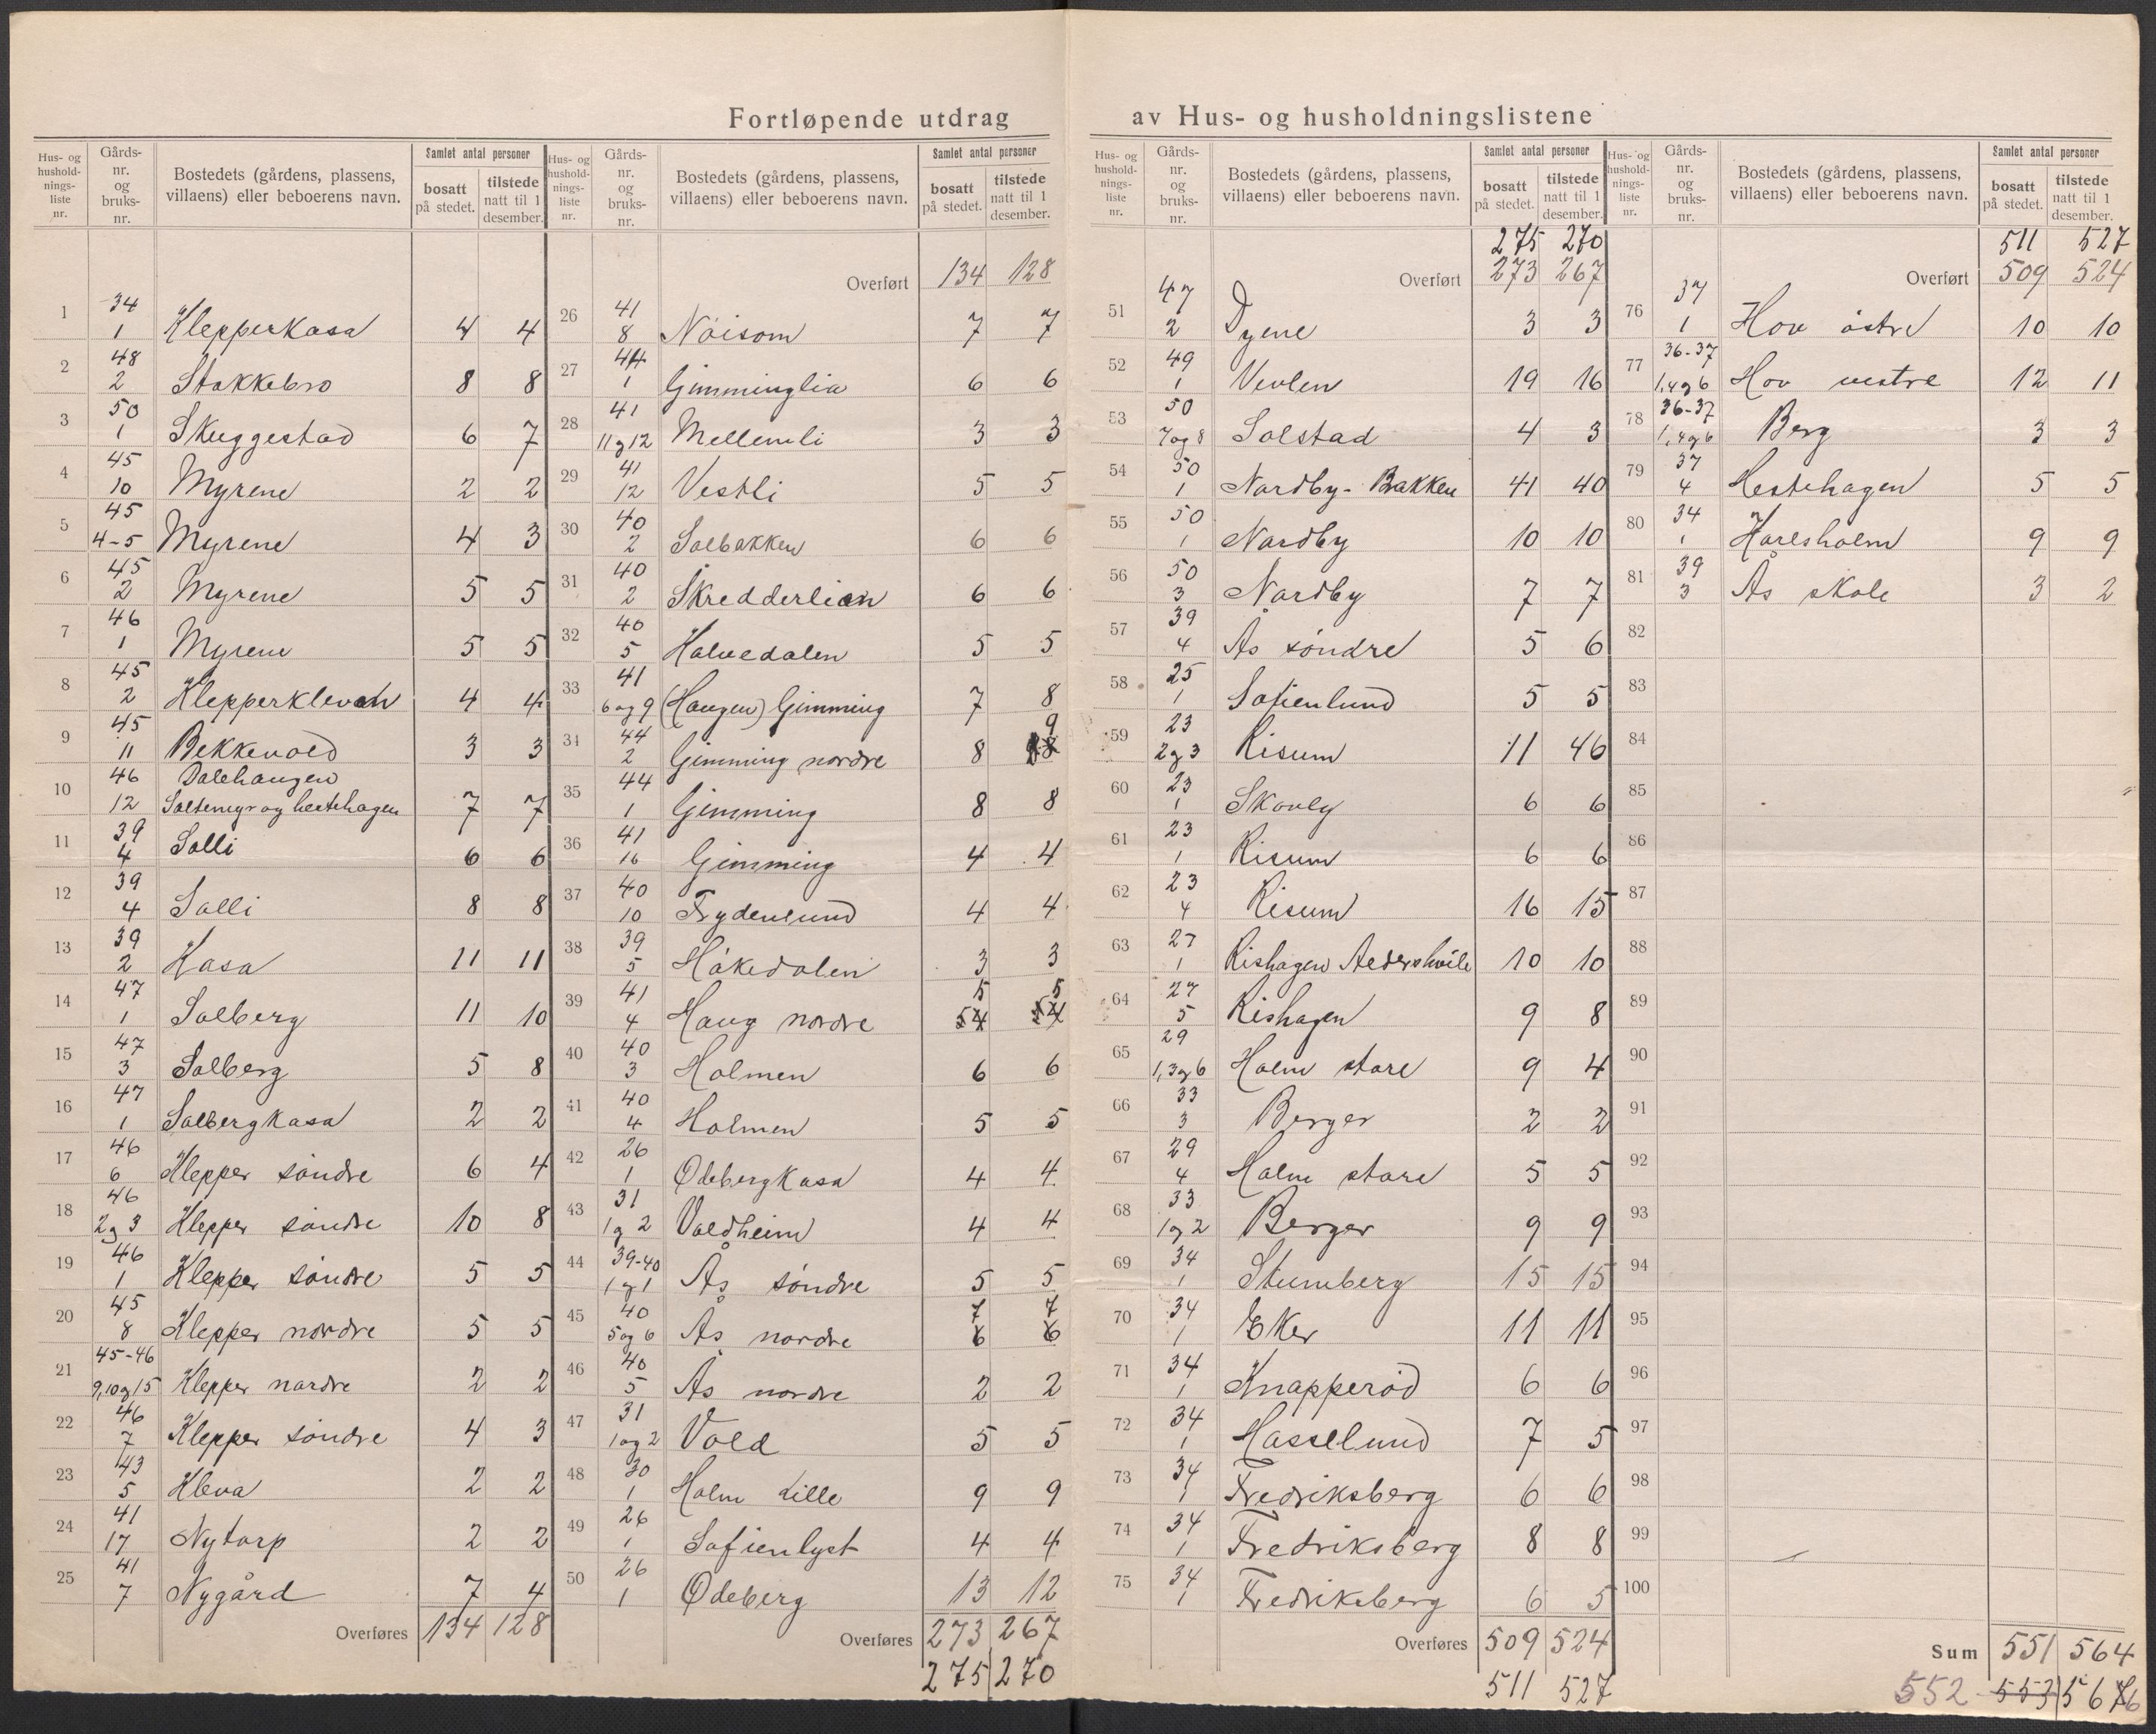 Fortløpende utdrag av Hus- og husholdningslistene
Hus- og husholdnings-liste nr. | Gårds-nr. og bruks-nr. | Bostedets (gårdens, plassens, villaens) eller beboerens navn. | Samlet antal personer | bosatt på stedet. | tilstede natt til 1 desember.
1 34 1 Klepperkasa 4 4
2 48 2 Stokkebro 8 8
3 50 1 Skuggestad 6 7
4 45 10 Myrene 2 2
5 45 4-5 Myrene 4 3
6 45 2 Myrene 5 5
7 46 1 Myrene 5 5
8 45 2 Klepperklevan 4 4
9 45 11 Bekkevold 3 3
10 46 12 Dalehaugen
Saltemyr og hestehagen 7 7
11 39 4 Solli 6 6
12 39 4 Solli 8 8
13 39 2 Kasa 11 11
14 47 1 Solberg 11 10
15 47 3 Solberg 5 8
16 47 1 Solbergkasa 2 2
17 46 6 Klepper søndre 6 4
18 46 2 og 3 Klepper søndre 10 8
19 46 1 Klepper søndre 5 5
20 45 8 Klepper nordre 5 5
21 45-46 9,10 og 15 Klepper nordre 2 2
22 46 7 Klepper søndre 4 3
23 43 5 Kleva 2 2
24 41 17 Nytorp 2 2
25 41 7 Nygård 7 4
Overføres 134 128
Hus- og husholdnings-liste nr. | Gårds-nr. og bruks-nr. | Bostedets (gårdens, plassens, villaens) eller beboerens navn. | Samlet antal personer | bosatt på stedet. | tilstede natt til 1 desember.
Overført 134 128
26 41 8 Nöisom 7 7
27 44 1 Gimminglia 6 6
28 41 11 og 12 Mellemli 3 3
29 41 12 Vestli 5 5
30 40 2 Solbakken 6 6
31 40 2 Skredderlien 6 6
32 40 5 Halvedalen 5 5
33 41 6 og 9 (Haugen) Gimming 7 8
34 44 2 Gimming nordre 8 9
35 44 1 Gimming 8 8
36 41 16 Gimming 4 4
37 40 10 Frydenlund 4 4
38 39 5 Håkedalen 3 3
39 41 4 Haug nordre 5 5
40 40 3 Holmen 6 6
41 40 4 Holmen 5 5
42 26 1 Ødebergkasa 4 4
43 31 1 og 2 Voldheim 4 4
44 39-40 1 og 1 Ås søndre 5 5
45 40 5 og 6 Ås nordre 7 7
6 6
46 40 5 Ås nordre 2 2
47 31 1 og 2 Vold 5 5
48 30 1 Holm Lille 9 9
49 26 1 Sofienlyst 4 4
50 26 1 Ødeberg 13 12
Overføres 273 267
275 270
Hus- og husholdnings-liste nr. | Gårds-nr. og bruks-nr. | Bostedets (gårdens, plassens, villaens) eller beboerens navn. | Samlet antal personer | bosatt på stedet. | tilstede natt til 1 desember.
275 270
Overført 273 267
51 47 2 Dyene 3 3
52 49 1 Vevlen 19 16
53 50 7 og 8 Solstad 4 3
54 50 1 Nordby-Bakken 41 40
55 50 1 Nordby 10 10
56 50 3 Nordby 7 7
57 39 4 Ås søndre 5 6
58 25 1 Sofienlund 5 5
59 23 2 og 3 Risum 11 46
60 23 1 Skovly 6 6
61 23 1 Risum 6 6
62 23 4 Risum 16 15
63 27 1 Rishagen 10 10
64 27 5 Rishagen 9 8
65 29 1,3 og 6 Holm store 9 4
66 33 3 Berger 2 2
67 29 4 Holm store 5 5
68 33 1 og 2 Berger 9 9
69 34 1 Stumberg 15 15
70 34 1 Eker 11 11
71 34 1 Knapperød 6 6
72 34 1 Hasselund 7 5
73 34 1 Fredriksberg 6 6
74 34 1 Fredriksberg 8 8
75 34 1 Fredriksberg 6 5
Overføres 509 524
511 527
Hus- og husholdnings-liste nr. | Gårds-nr. og bruks-nr. | Bostedets (gårdens, plassens, villaens) eller beboerens navn. | Samlet antal personer | bosatt på stedet. | tilstede natt til 1 desember.
511 527
Overført 509 524
76 37 1 Hov östre 10 10
77 36-37 1,4 og 6 Hov vestre 12 11
78 36-37 1,4 og 6 Berg 3 3
79 37 4 Hestehagen 5 5
80 34 1 Karlsholm 9 9
81 39 3 Ås skole 3 2
82
83
84
85
86
87
88
89
90
91
92
93
94
95
96
97
98
99
100
Sum 551 564
552 553 566